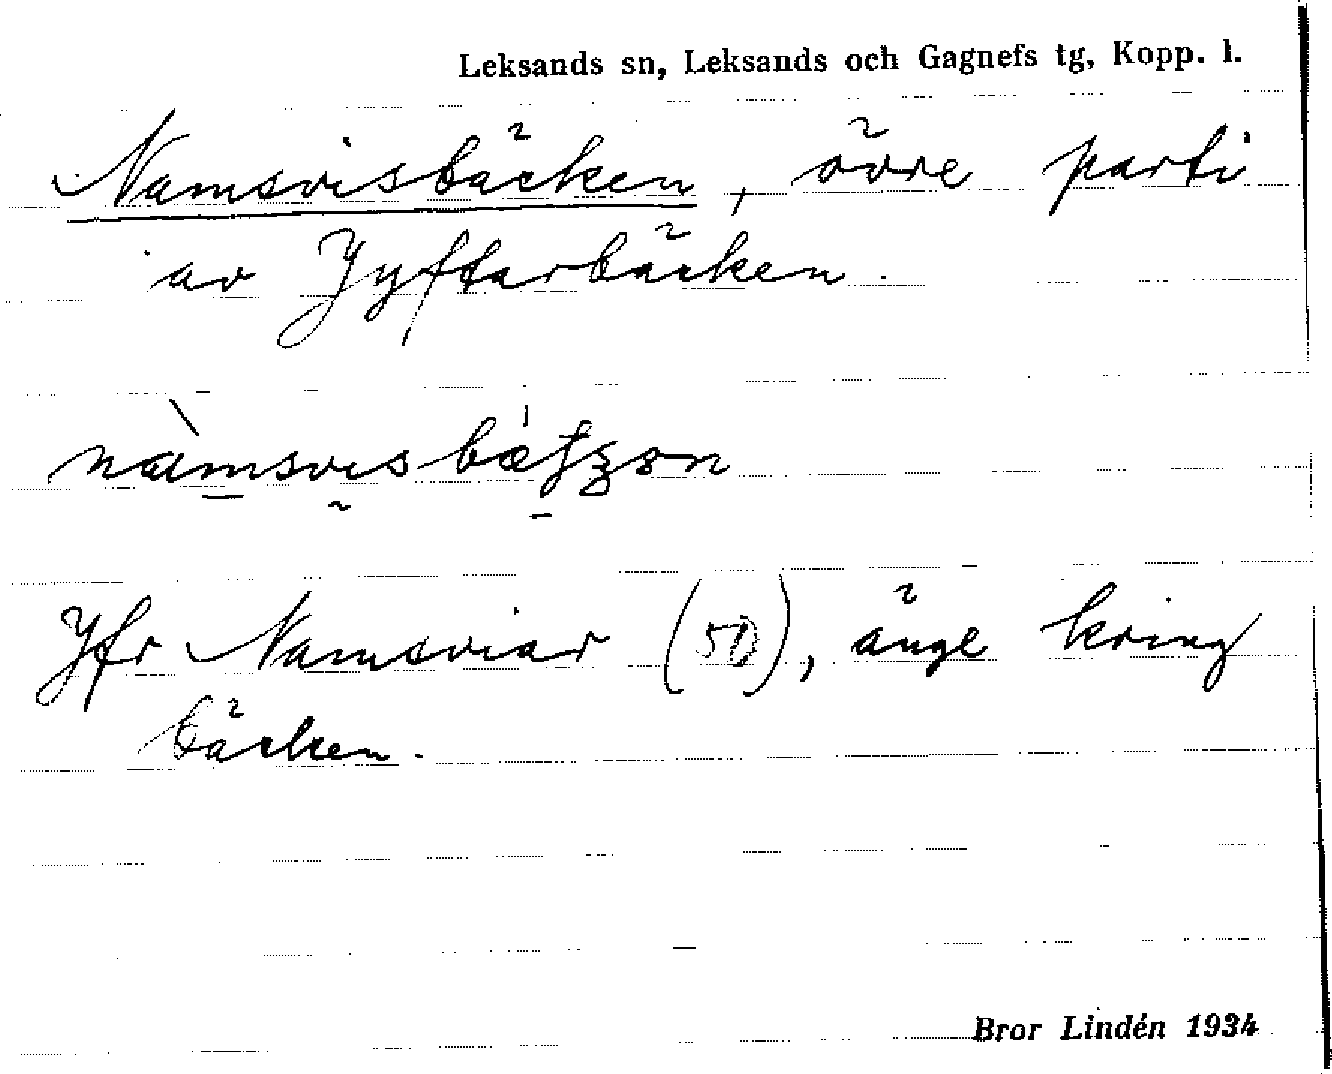 Leksands sn, Leksands och Gagnefs tg, Kopp. l.
Namsvisbäcken, övre parti
av Jyftarbäcken.
Jfr Namsviar (50), änge kring
bäcken.
Bror Lindén 1934